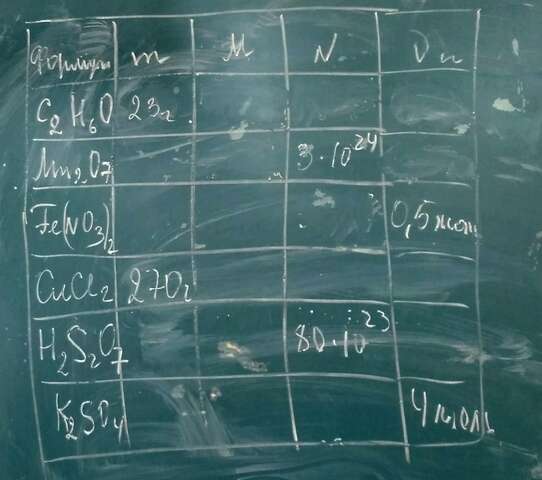 Формула m M N ν n
C₂H₆O 23г
Mn₂O₇ 3·10²⁴
Fe(NO₃)₂ 0,5 моль
CuCl₂ 270г
H₂S₂O₇ 80·10²³
K₂SO₄ 4 моль